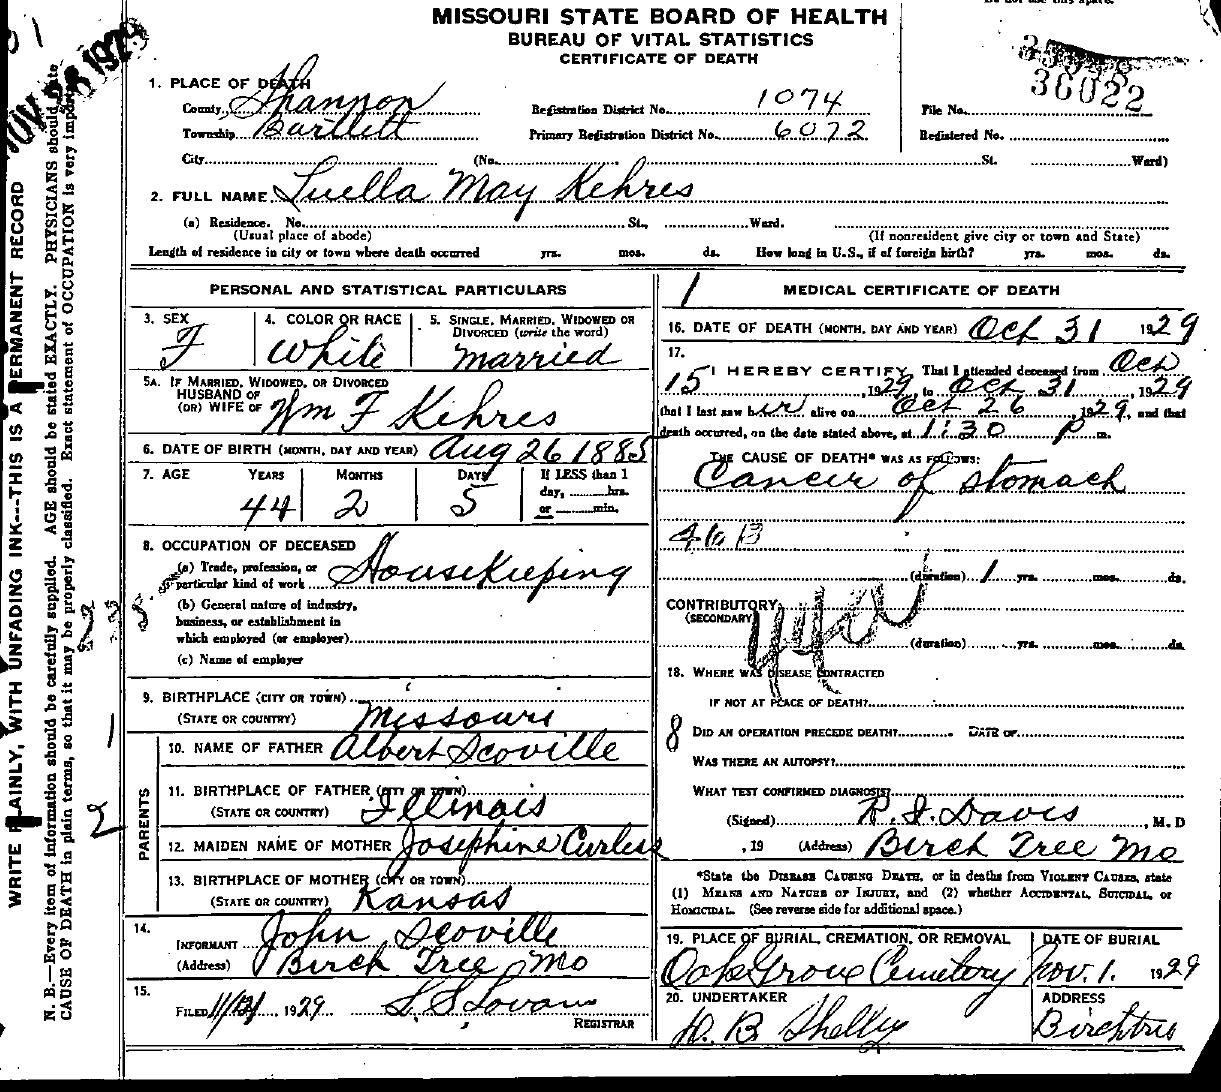 MISSOURI STATE BOARD OF HEALTH
BUREAU OF VITAL STATISTICS
CERTIFICATE OF DEATH
36022
1. PLACE OF DEATH
County Shannon Registration District No. 1074 File No.
Township Bartlett Primary Registration District No. 6072 Registered No.
City (No. St. Ward)
2. FULL NAME Luella May Kehres
(a) Residence. No. St., Ward.
(Usual place of abode) (If nonresident give city or town and State)
Length of residence in city or town where death occurred yrs. mos. ds. How long in U.S., if of foreign birth? yrs. mos. ds.
PERSONAL AND STATISTICAL PARTICULARS
3. SEX F
4. COLOR OR RACE White
5. SINGLE, MARRIED, WIDOWED OR DIVORCED (write the word) married
5A. IF MARRIED, WIDOWED, OR DIVORCED
HUSBAND OF
(OR) WIFE OF Wm F Kehres
6. DATE OF BIRTH (MONTH, DAY AND YEAR) Aug 26 1885
7. AGE YEARS MONTHS DAYS If LESS than 1
day, hrs.
or min.
44 2 5
8. OCCUPATION OF DECEASED
(a) Trade, profession, or
particular kind of work Housekeeping
(b) General nature of industry,
business, or establishment in
which employed (or employer)
(c) Name of employer
9. BIRTHPLACE (CITY OR TOWN)
(STATE OR COUNTRY) Missouri
PARENTS
10. NAME OF FATHER Albert Scoville
11. BIRTHPLACE OF FATHER (CITY OR TOWN)
(STATE OR COUNTRY) Illinois
12. MAIDEN NAME OF MOTHER Josephine Curless
13. BIRTHPLACE OF MOTHER (CITY OR TOWN)
(STATE OR COUNTRY) Kansas
14.
INFORMANT John Scoville
(Address) Birch Tree Mo
15.
FILED 1929
REGISTRAR
1
MEDICAL CERTIFICATE OF DEATH
16. DATE OF DEATH (MONTH, DAY AND YEAR) Oct 31 1929
17.
I HEREBY CERTIFY, That I attended deceased from Oct
15, 1929 to Oct 31, 1929
that I last saw her alive on Oct 26, 1929, and that
death occurred, on the date stated above, at 1:30 p m.
THE CAUSE OF DEATH* WAS AS FOLLOWS:
Cancer of stomach
46 B
(duration) 1 yrs. mos. ds.
CONTRIBUTORY
(SECONDARY)
(duration) yrs. mos. ds.
18. WHERE WAS DISEASE CONTRACTED
IF NOT AT PLACE OF DEATH?
8 DID AN OPERATION PRECEDE DEATH? DATE OF
WAS THERE AN AUTOPSY?
WHAT TEST CONFIRMED DIAGNOSIS?
(Signed) R. S. Davis, M. D
, 19 (Address) Birch Tree Mo
*State the DISEASE CAUSING DEATH, or in deaths from VIOLENT CAUSES, state
(1) MEANS AND NATURE OF INJURY, and (2) whether ACCIDENTAL, SUICIDAL, or
HOMICIDAL. (See reverse side for additional space.)
19. PLACE OF BURIAL, CREMATION, OR REMOVAL DATE OF BURIAL
Oak Grove Cemetery Nov. 1. 1929
20. UNDERTAKER ADDRESS
D. B. Shelly Birchtree
WRITE PLAINLY, WITH UNFADING INK---THIS IS A PERMANENT RECORD
N. B.—Every item of information should be carefully supplied. AGE should be stated EXACTLY. PHYSICIANS should state
CAUSE OF DEATH in plain terms, so that it may be properly classified. Exact statement of OCCUPATION is very important.